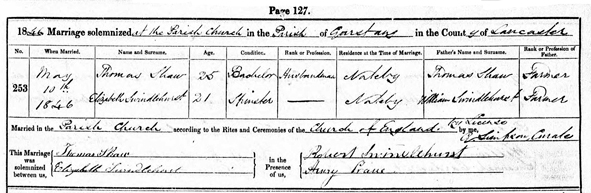 Page 127.
1846 Marriage solemnized at the Parish Church in the Parish of Garstang in the County of Lancaster
No. When Married. Name and Surname. Age. Condition. Rank or Profession. Residence at the Time of Marriage. Father's Name and Surname. Rank or Profession of Father.
253 May 10th 1846 Thomas Shaw 25 Bachelor Husbandman Nateby Thomas Shaw Farmer
Elizabeth Swindlehurst 21 Spinster — Nateby William Swindlehurst Farmer
Married in the Parish Church according to the Rites and Ceremonies of the Church of England by License by me,
Simpson, Curate
This Marriage was solemnized between us, Thomas Shaw
Elizabeth Swindlehurst
in the Presence of us, Robert Swindlehurst
Henry